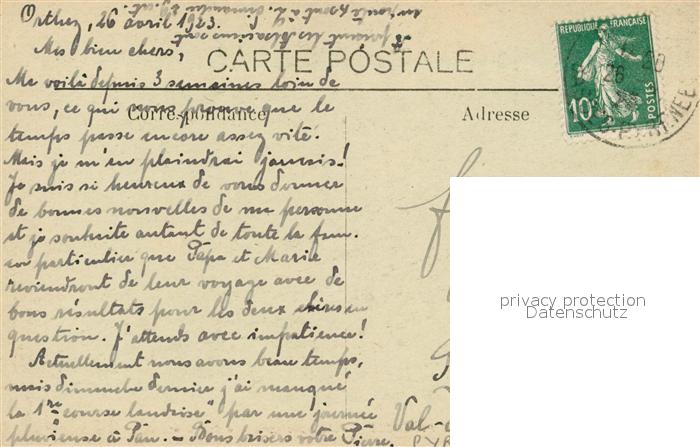 Orthez, 26 avril 1923.
Mes bien chers,
CARTE POSTALE
Correspondance
Adresse
REPUBLIQUE FRANÇAISE
10c
POSTES
26
Me voilà depuis 3 semaines loin de
vous, ce qui vous prouve que le
temps passe encore assez vite.
Mais je m'en plaindrai jamais!
Je suis si heureux de vous donner
de bonnes nouvelles de ma personne
et je souhaite autant de toute la fam.
en particulier que Papa et Marie
reviendront de leur voyage avec de
bons résultats pour les deux chères en
question. J'attends avec impatience!
Actuellement nous avons beau temps,
mais dimanche dernier j'ai manqué
la 1re "course landaise" par une journée
pluvieuse à Pau. - Bons baisers votre Pierre.
Val-
privacy protection
Datenschutz